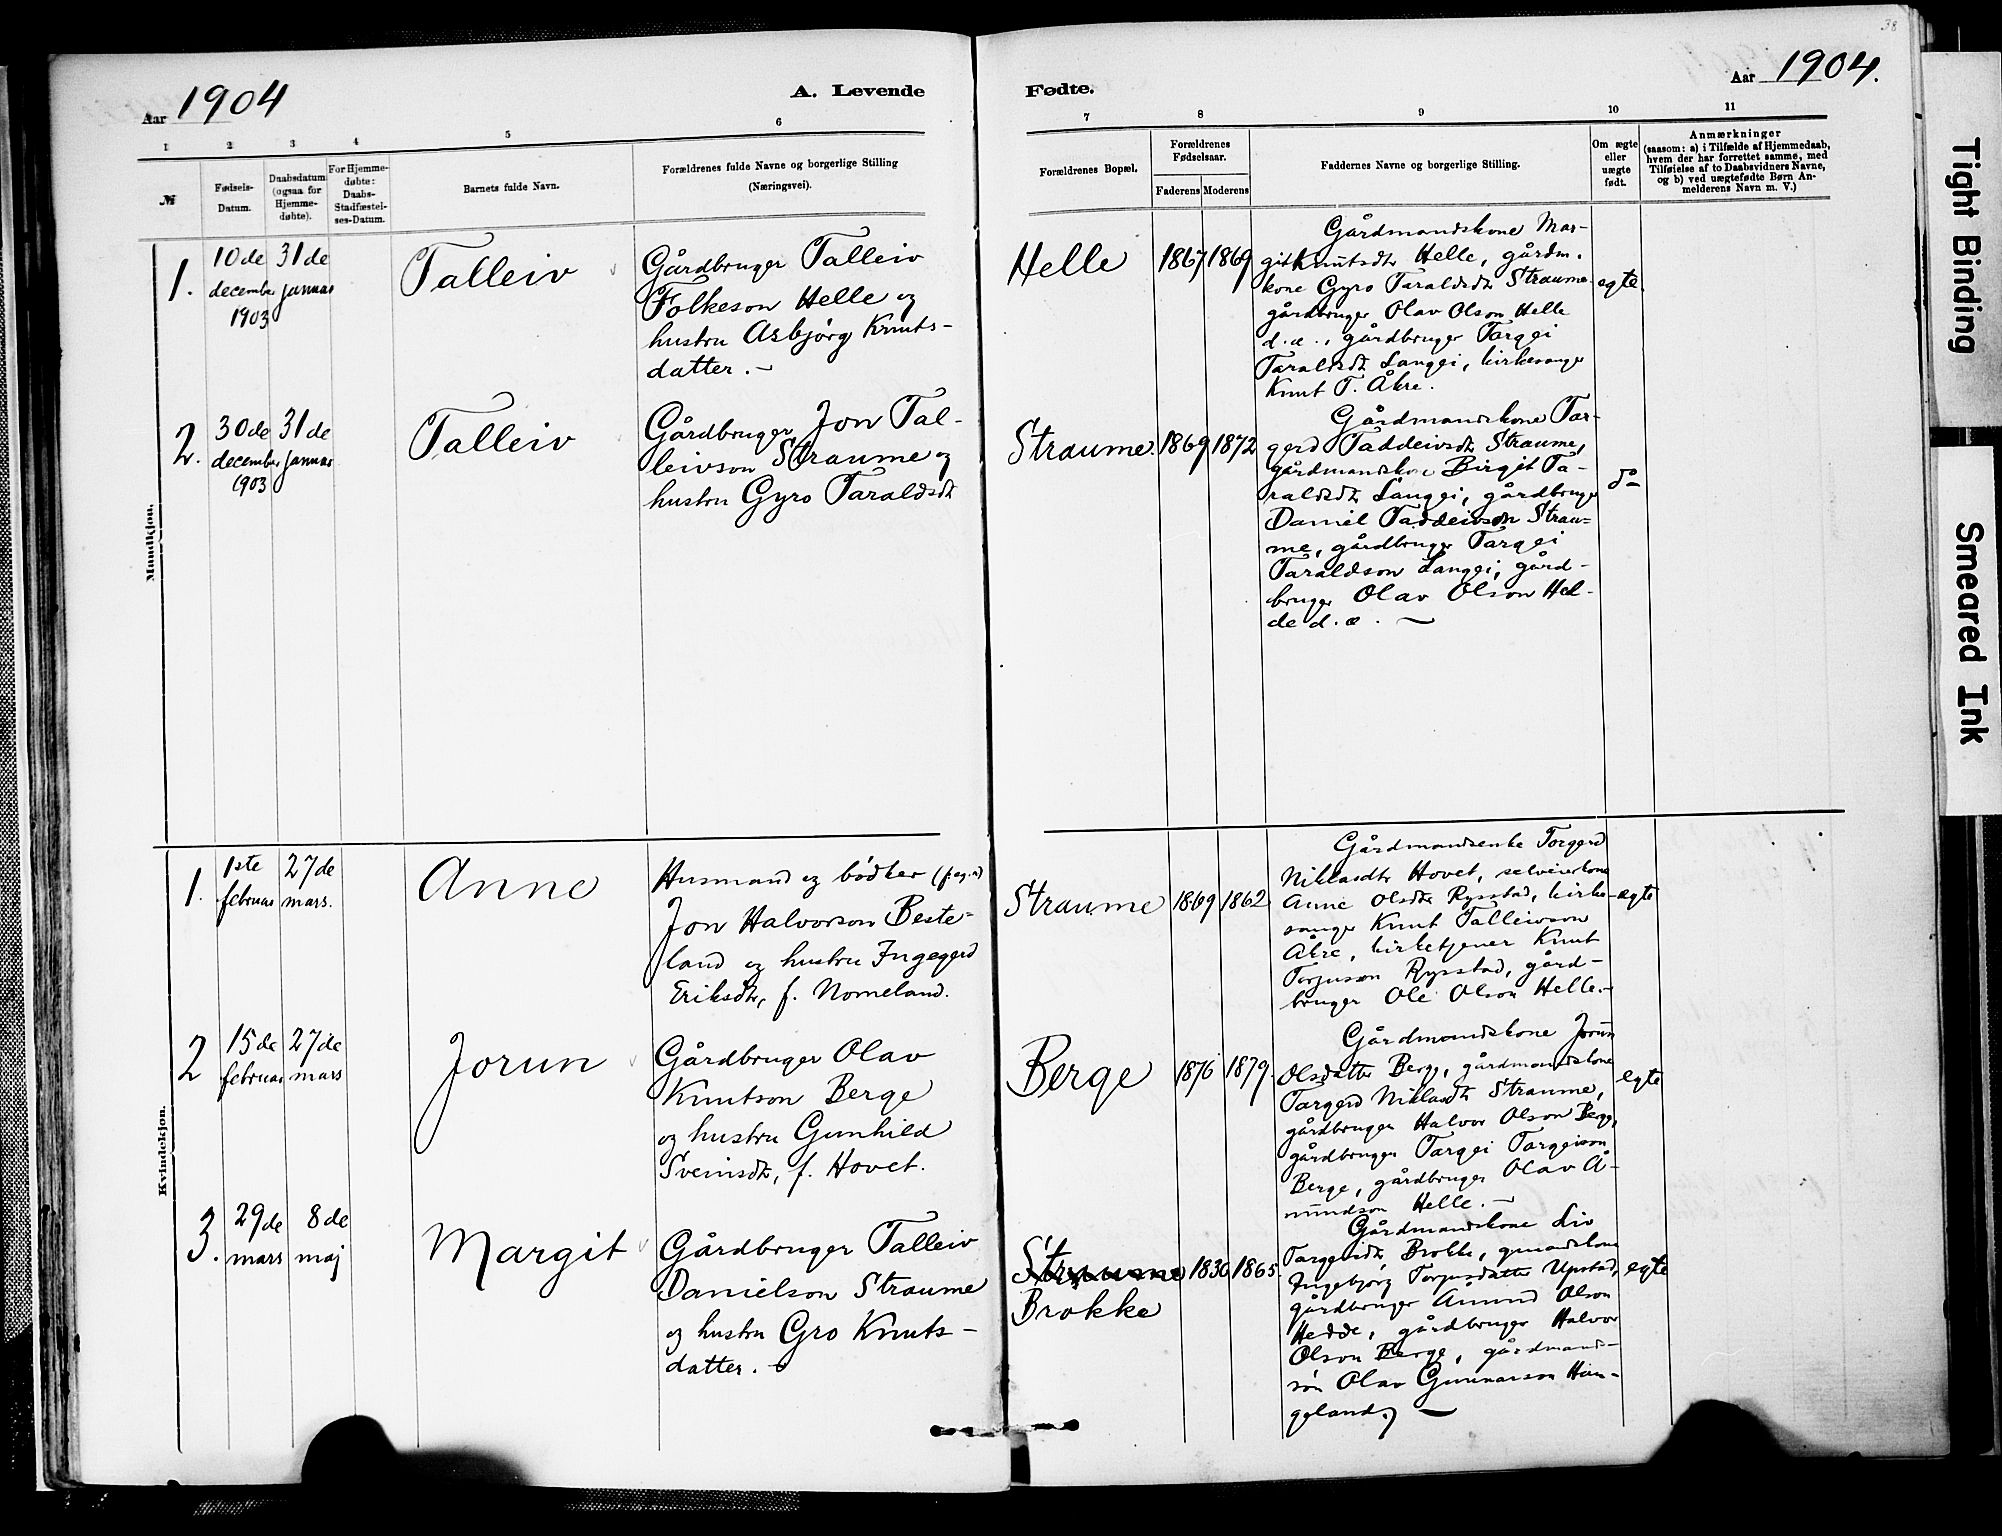 38
Aar 1904
A. Levende
Fødte.
Aar 1904.
1
2
3
4
5
6
7
8
9
10
11
№
Fødsels-
Datum.
Daabsdatum
(ogsaa for
Hjemme-
døbte).
For Hjemme-
døbte:
Daabs-
Stadfæstel-
ses-Datum.
Barnets fulde Navn.
Forældrenes fulde Navne og borgerlige Stilling
(Næringsvei).
Forældrenes Bopæl.
Forældrenes
Fødselsaar.
Faderens
Moderens
Faddernes Navne og borgerlige Stilling.
Om ægte
eller
uægte
født.
Anmærkninger
(saasom: a) i Tilfælde af Hjemmedaab,
hvem der har forrettet samme, med
Tilføielse af to Daabsvidners Navne,
og b) ved uægtefødte Børn An-
melderens Navn m. V.)
Mandkjøn.
1.
10de
december
1903
31de
januar
Talleiv
Gårdbruger Talleiv
Folkeson Helle og
hustru Asbjörg Knuts-
datter.-
Helle
1867
1869
Gårdmandskone Mar-
git Knutsdtr Helle, gårdm.
kone Gyro Taraldsdtr Straume
gårdbruger Olav Olson Helle
d.æ., gårdbruger Targei
Taraldsdt Langgei, kirkesanger
Knut T. Åkre.
egte.
2.
30de
december
1903
31de
januar
Talleiv
Gårdbruger Jon Tal-
leivson Straume og
hustru Gyro Taraldsdtr
Straume.
1869
1872
Gårdmandskone Tar-
gerd Taddeivsdtr Straume,
gårdmandskone Birgit Ta-
raldsdtr Langgei, gårdbruger
Daniel Taddeivson Strau-
me, gårdbruger Targei
Taraldson Langgei, gård-
bruger Olav Olson Hel-
de d.æ. -
do
Kvindekjøn.
1.
1ste
februar
27de
mars.
Anne
Husmand og bödker
Jon Halvorson Beste-
land og hustru Ingegerd
Eriksdtr, f. Nomeland.
Straume
1869
1862
Gårdmandsenke Torgerd
Niklasdtr Hovet, selveierkone
Anne Olsdtr Rysstad, kirke-
sanger Knut Talleivson
Åkre, kirketjener Knut
Torjuson Rysstad, gård-
bruger Ole Olson Helle.-
egte
2
15de
februar
27de
mars
Jorun
Gårdbruger Olav
Knutson Berge
og hustru Gunhild
Sveinsdtr, f. Hovet.
Berge
1876
1879.
Gårdmandskone Jorun
Olsdatter Berge, gårdmandskone
Targerd Niklasdtr Straume,
gårdbruger Halvor Olson Berge,
gårdbruger Targei Targeison
Berge, gårdbruger Olav Å-
mundson Helle.-
egte
3.
29de
mars
8de
maj
Margit
Gårdbruger Talleiv
Danielson Straume
og hustru Gro Knuts-
datter.-
Straume
Brokke
1836
1865.
Gårdmandskone Liv
Targeisdtr Brokke, gmandskone
Ingebjörg Torjusdatter Upstad,
gårdbruger Åmund Olson
Hedde, gårdbruger Halvor
Olson Berge, gårdmands-
sön Olav Gunnarson Hou-
geland. -
egte
Tight Binding
Smeared Ink